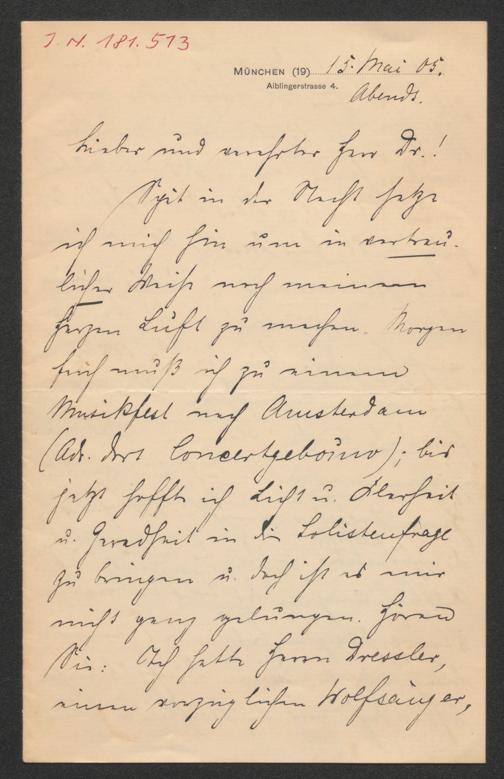 J. N. 181.573
MÜNCHEN (19) 15. Mai 05.
Aiblingerstrasse 4.
Abends.
Lieber und verehrter Herr Dr.!
Spät in der Nacht setze
ich mich hin um in vertrau-
licher Weise noch meinem
Herzen Luft zu machen. Morgen
früh muß ich zu einem
Musikfest nach Amsterdam
(Adr. dort Concertgebouw); bis
jetzt hoffte ich Licht u. Klarheit
u. Geradheit in die Solistenfrage
zu bringen u. doch ist es mir
nicht ganz gelungen. Hören
Sie: Ich hatte Herrn Dressler,
einen vorzüglichen Wolfsänger,